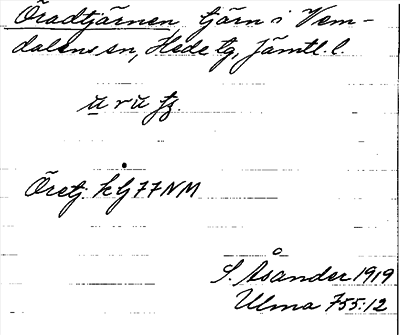 Öradtjärnen tjärn i Vem-
dalens sn, Hede tg, Jämtl. l.
ü r ü tj.
Öretj. k bj 77 NM
S. Åsander 1919
Ulma 755:12